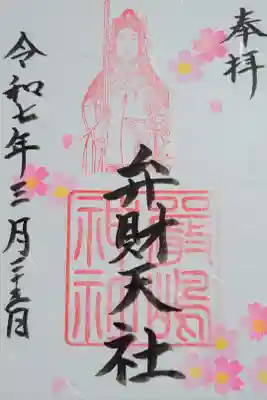 奉拝
弁財天社
嚴嶋神社
令和七年三月二十五日